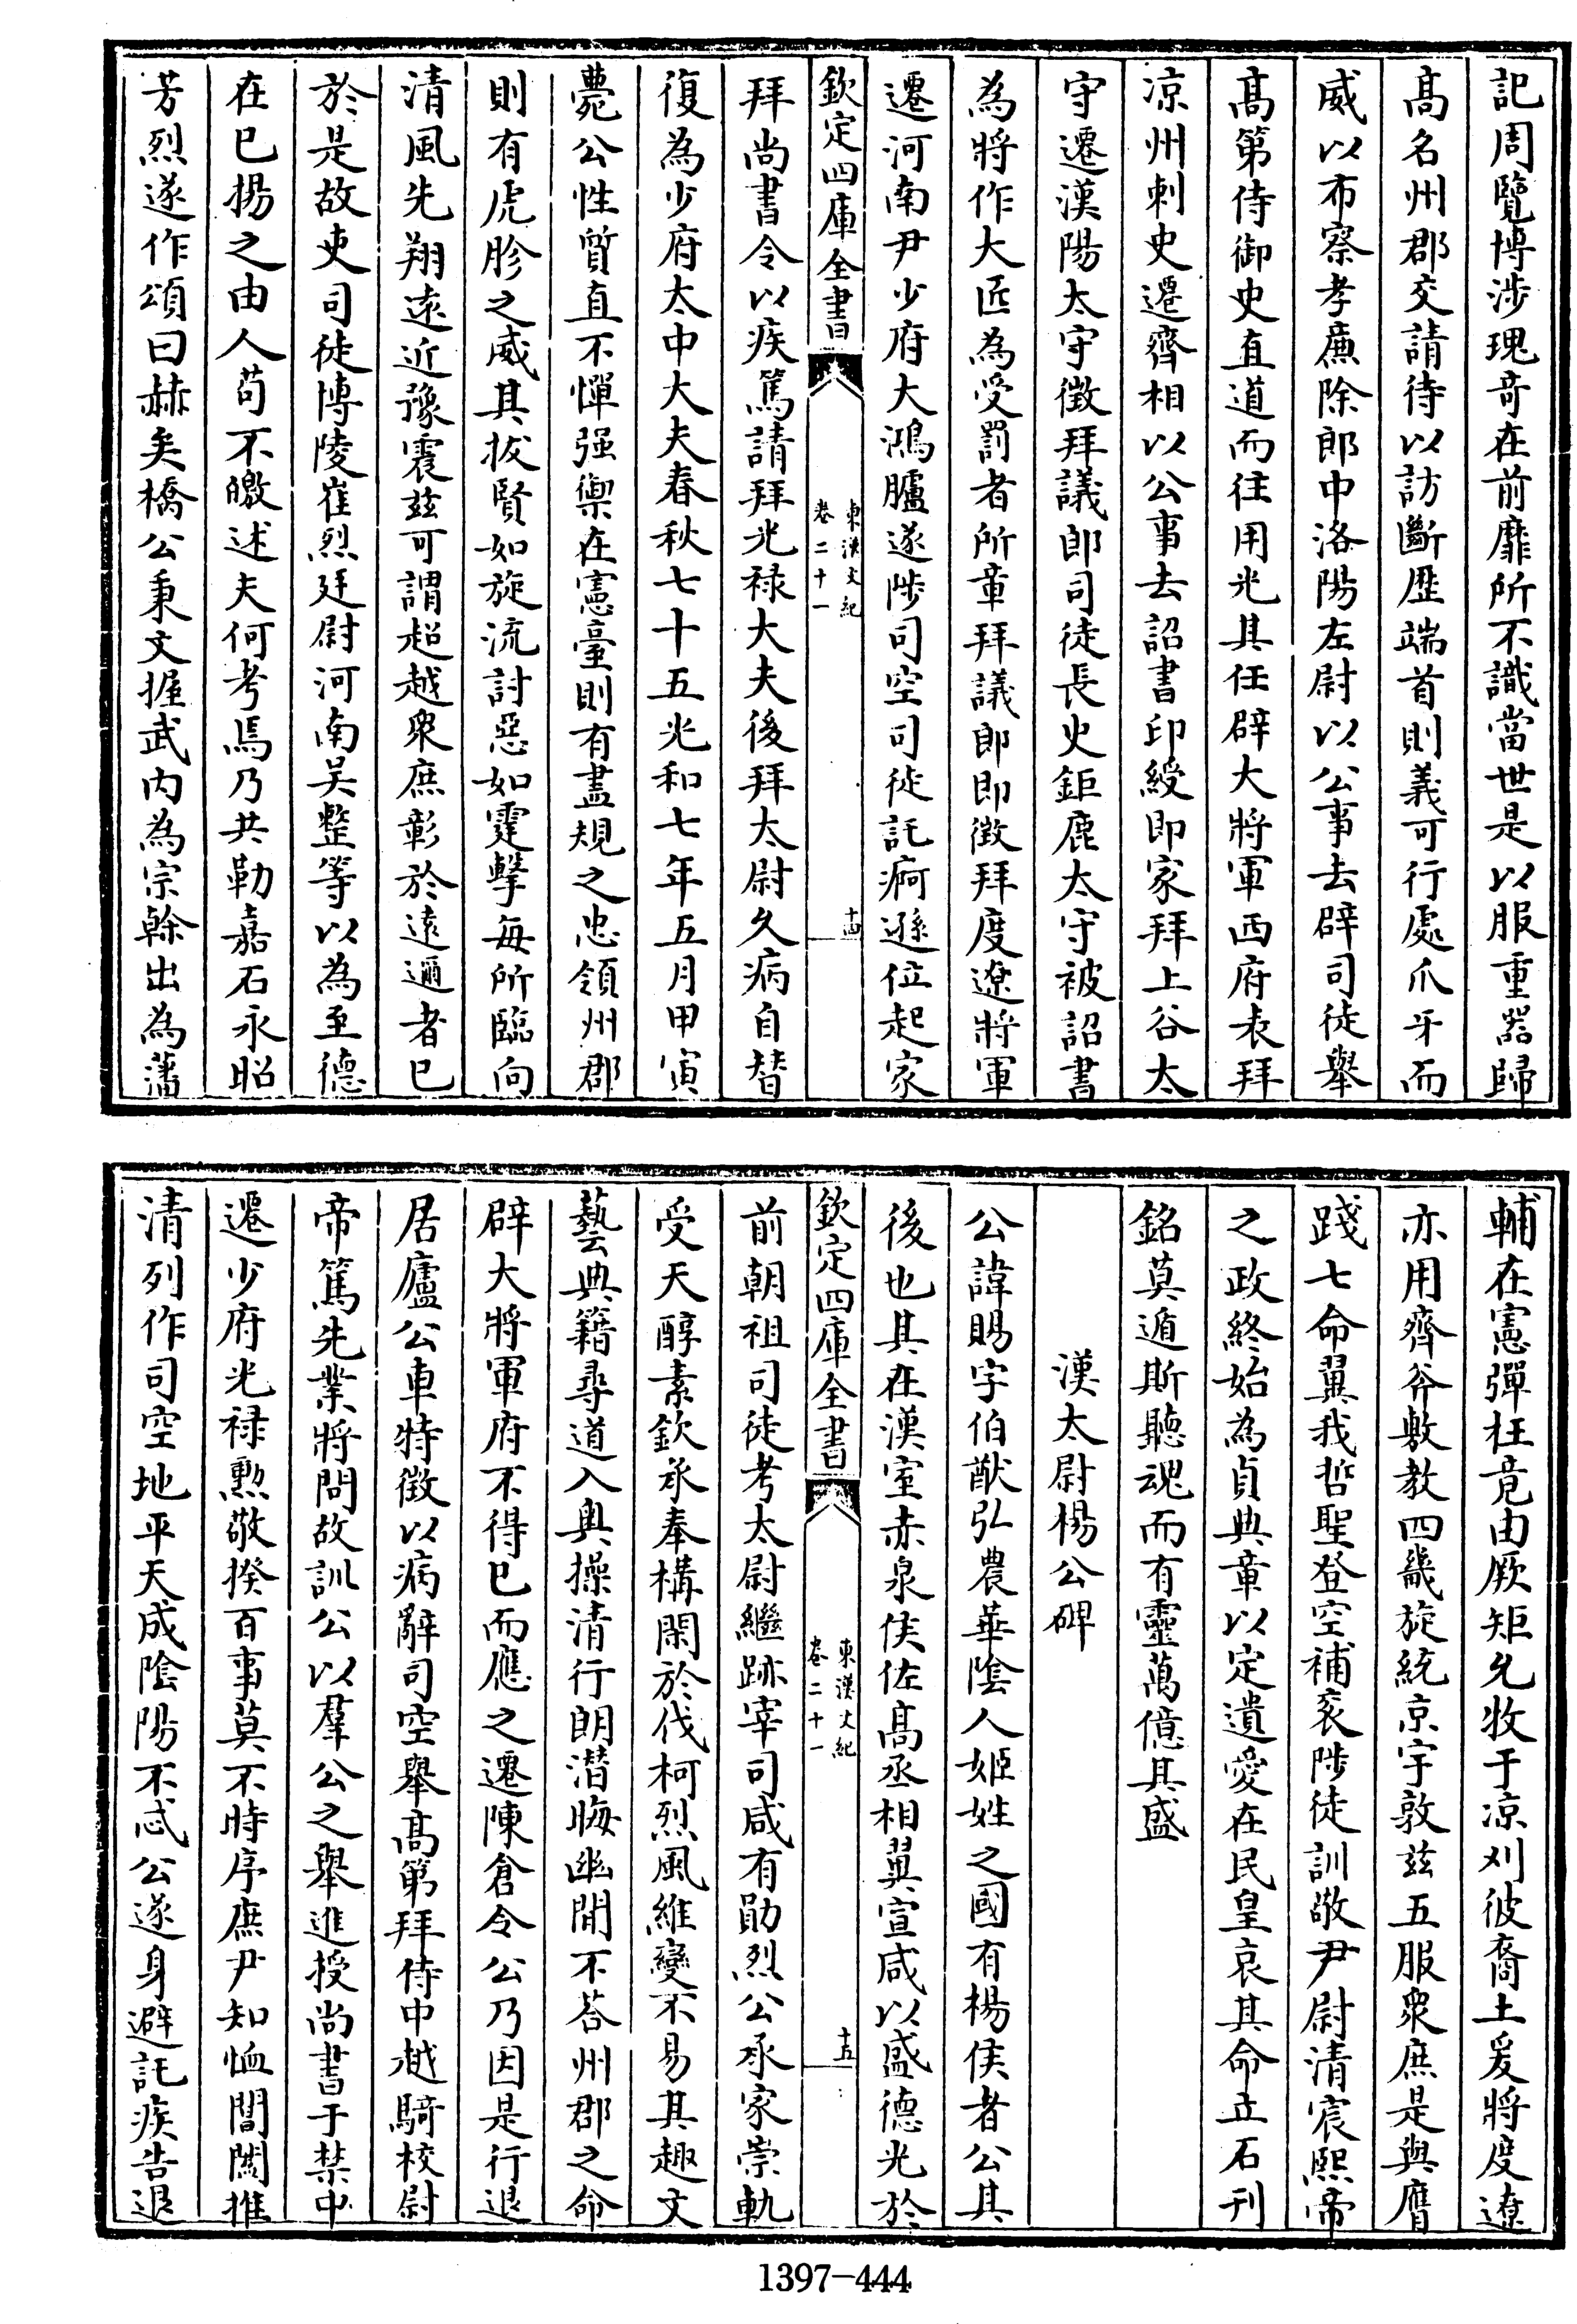 記周覽博涉瑰奇在前靡所不識當世是以服重器歸
髙名州郡交請待以訪斷歴端首則義可行處爪牙而
威以布察孝廉除郎中洛陽左尉以公事去辟司徒舉
髙第侍御史直道而往用光其任辟大將軍西府表拜
凉州刺史遷齊相以公事去詔書印綬即家拜上谷太
守遷漢陽太守徵拜議郎司徒長史鉅鹿太守被詔書
為將作大匠為受罰者所章拜議郎即徵拜度遼將軍
遷河南尹少府大鴻臚遂陟司空司徒託痾遜位起家
欽定四庫全書
東漢文紀
卷二十一
十四
拜尚書令以疾篤請拜光禄大夫後拜太尉久病自替
復為少府太中大夫春秋七十五光和七年五月甲寅
薨公性質直不憚强禦在憲臺則有盡規之忠領州郡
則有虎胗之威其拔賢如旋流討惡如霆擊毎所臨向
清風先翔遠近豫震兹可謂超越衆庶彰於遠邇者已
於是故吏司徒博陵崔烈廷尉河南吳整等以為至德
在已揚之由人苟不皦述夫何考焉乃共勒嘉石永昭
芳烈遂作頌曰赫矣橋公秉文握武内為宗榦出為藩
輔在憲彈枉竟由厥矩允牧于凉刈彼裔土爰將度遼
亦用齊斧敷教四畿旋統京宇敦兹五服衆庶是與膺
踐七命翼我哲聖登空補衮陟徒訓敬尹尉清宸熙帝
之政終始為貞典章以定遺愛在民皇哀其命立石刊
銘莫遁斯聽魂而有靈萬億其盛
漢太尉楊公碑
公諱賜字伯猷弘農華陰人姬姓之國有楊侯者公其
後也其在漢室赤泉侯佐髙丞相翼宣咸以盛德光於
欽定四庫全書
東漢文紀
卷二十一
十五
前朝祖司徒考太尉繼跡宰司咸有勛烈公承家崇軌
受天醇素欽承奉構閑於伐柯烈風維變不易其趣文
藝典籍尋道入奥操清行朗潛晦幽閒不荅州郡之命
辟大將軍府不得已而應之遷陳倉令公乃因是行退
居廬公車特徵以病辭司空舉髙第拜侍中越騎校尉
帝篤先業將問故訓公以羣公之舉進授尚書于禁中
遷少府光禄勲敬揆百事莫不時序庶尹知恤閶闔推
清列作司空地平天成陰陽不忒公遂身避託疾告退
1397-444